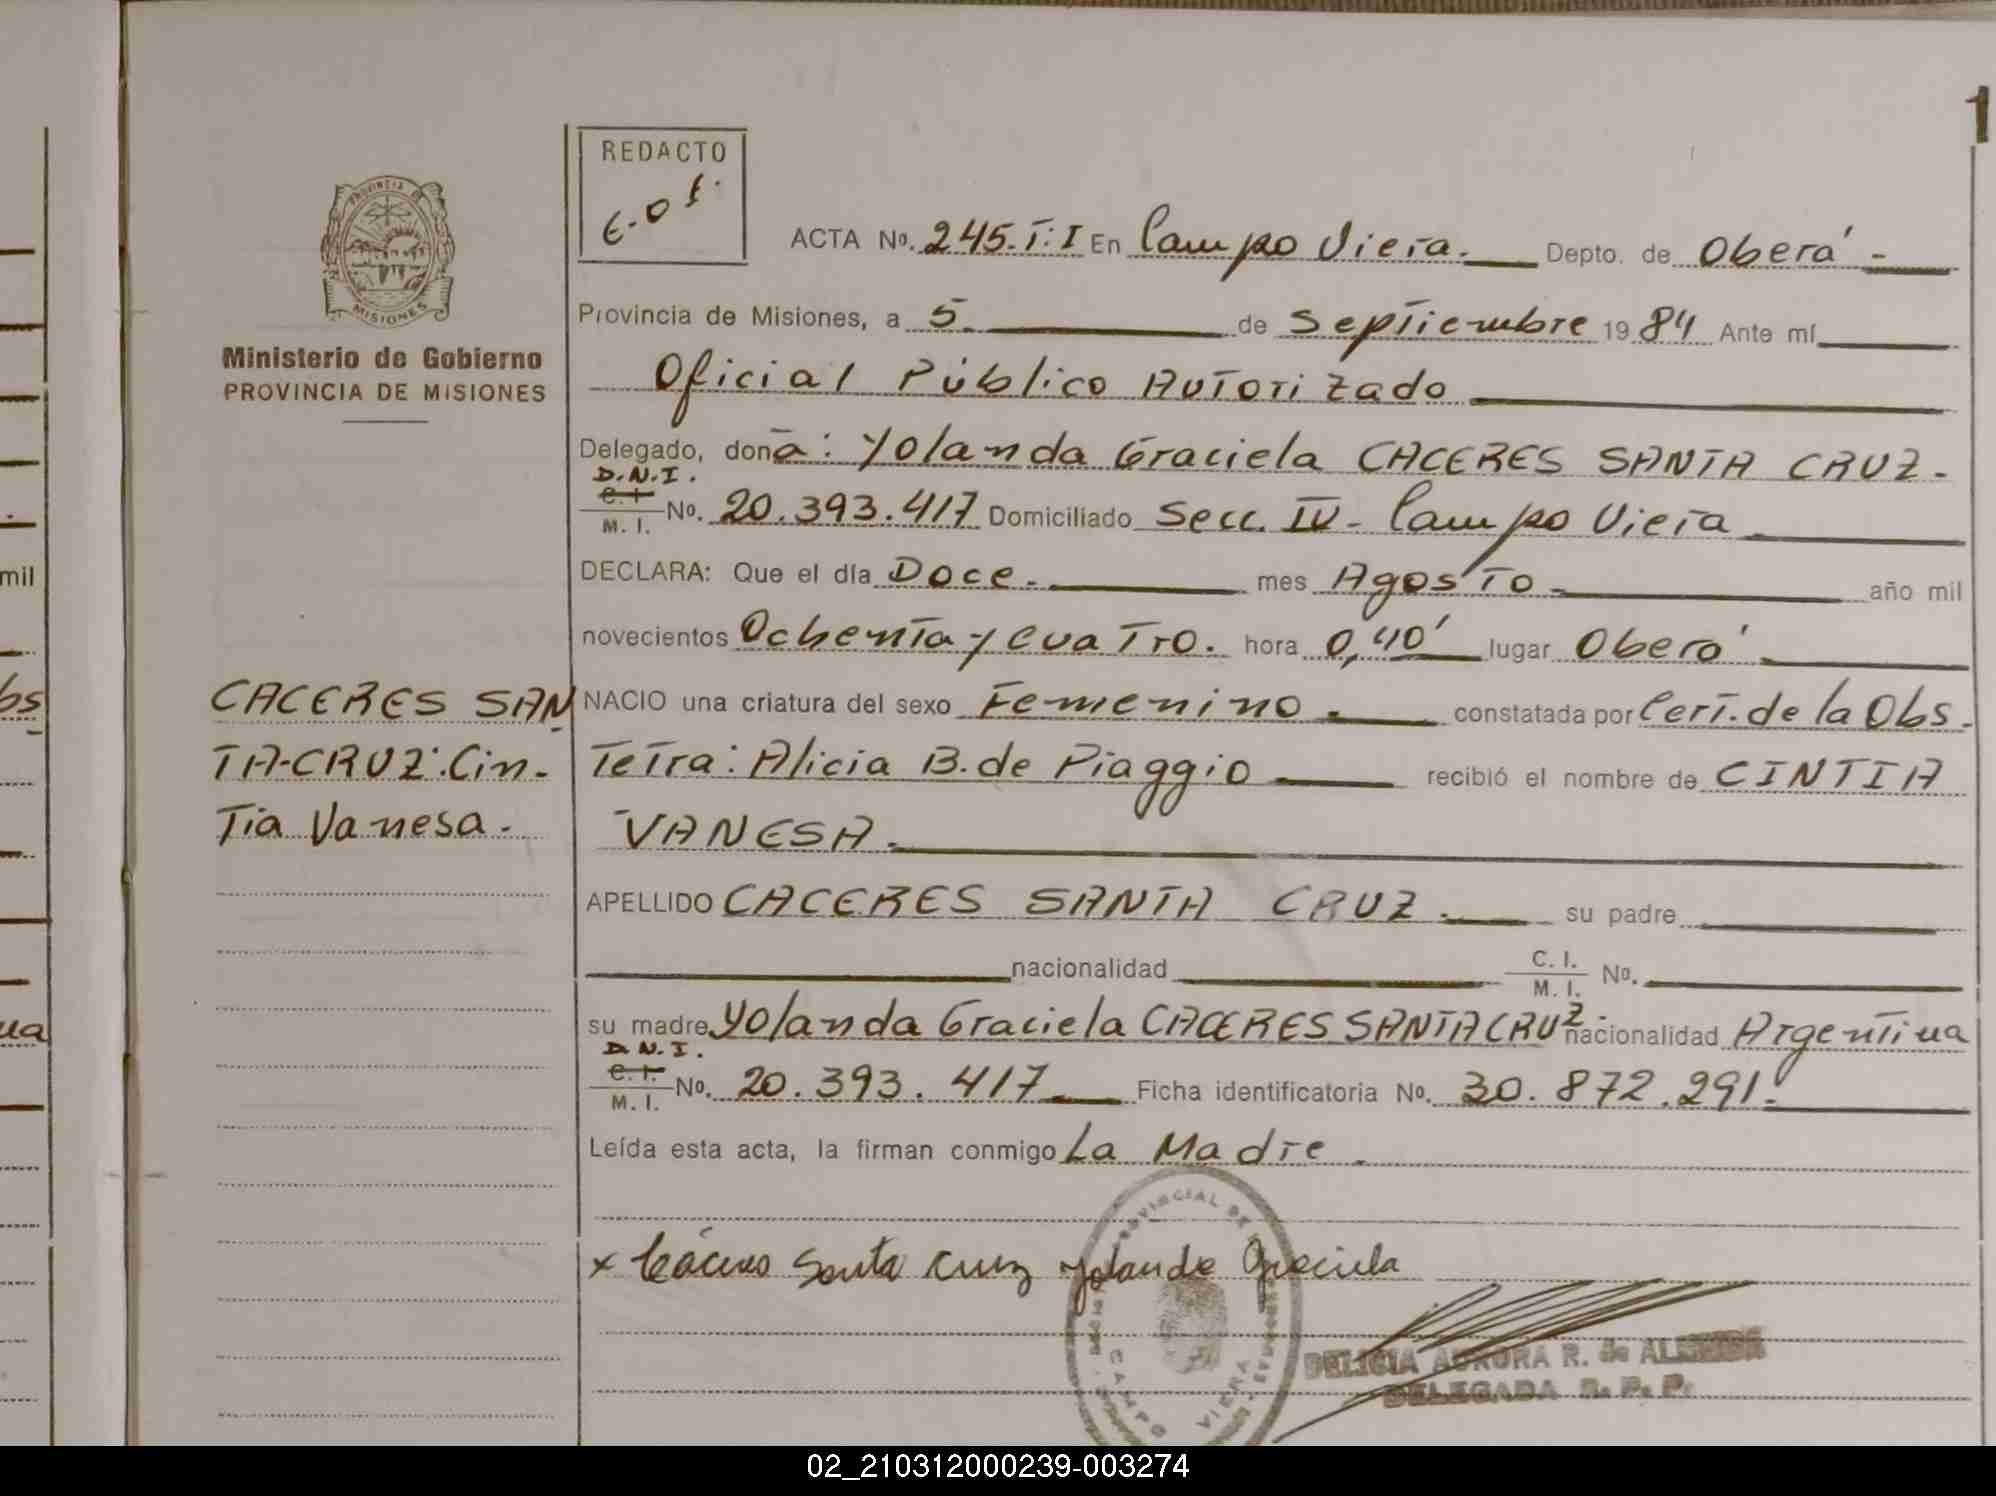 1
REDACTO
PROVINCIA DE
MISIONES
Ministerio de Gobierno
PROVINCIA DE MISIONES
ACTA No. 245. T: I En Campo Viera. Depto. de Oberá -
Provincia de Misiones, a 5. de Septiembre 1984 Ante mí
Oficial Público Autorizado
Delegado, doña: Yolanda Graciela CACERES SANTA CRUZ.-
D.N.I.
C. I.
M. I. No. 20.393.417 Domiciliado Secc. IV - Campo Viera
DECLARA: Que el día Doce. mes Agosto año mil
novecientos Ochenta y cuatro. hora 0,40' lugar Oberá
NACIO una criatura del sexo Femenino. constatada por Cert. de la Obs-
tetra: Alicia B. de Piaggio recibió el nombre de CINTIA
VANESA.
CACERES SAN
TA-CRUZ: Cin-
tia Vanesa.
APELLIDO CACERES SANTA CRUZ. su padre
nacionalidad C. I.
M. I. No.
su madre Yolanda Graciela CACERES SANTA CRUZ nacionalidad Argentina
D.N.I.
C. I.
M. I. No. 20.393.417 Ficha identificatoria No. 30.872.291.
Leída esta acta, la firman conmigo La Madre.
x Cáceres Santa Cruz Yolanda Graciela
PROVINCIAL DE
CAMPO VIERA
DELICIA AURORA R. de
DELEGADA R. P. P.
mil
ua
02_210312000239-003274